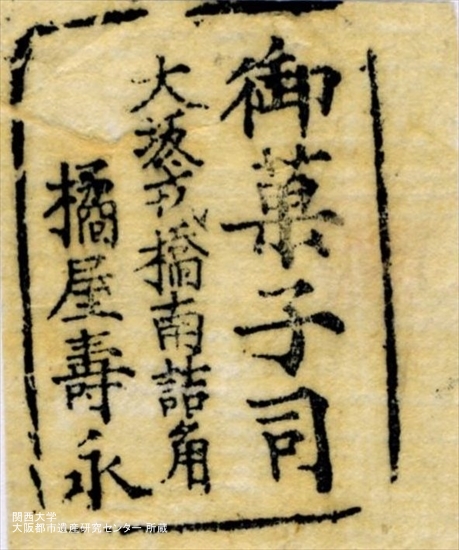 御菓子司
大坂戎橋南詰角
橘屋壽永
関西大学
大阪都市遺産研究センター 所蔵